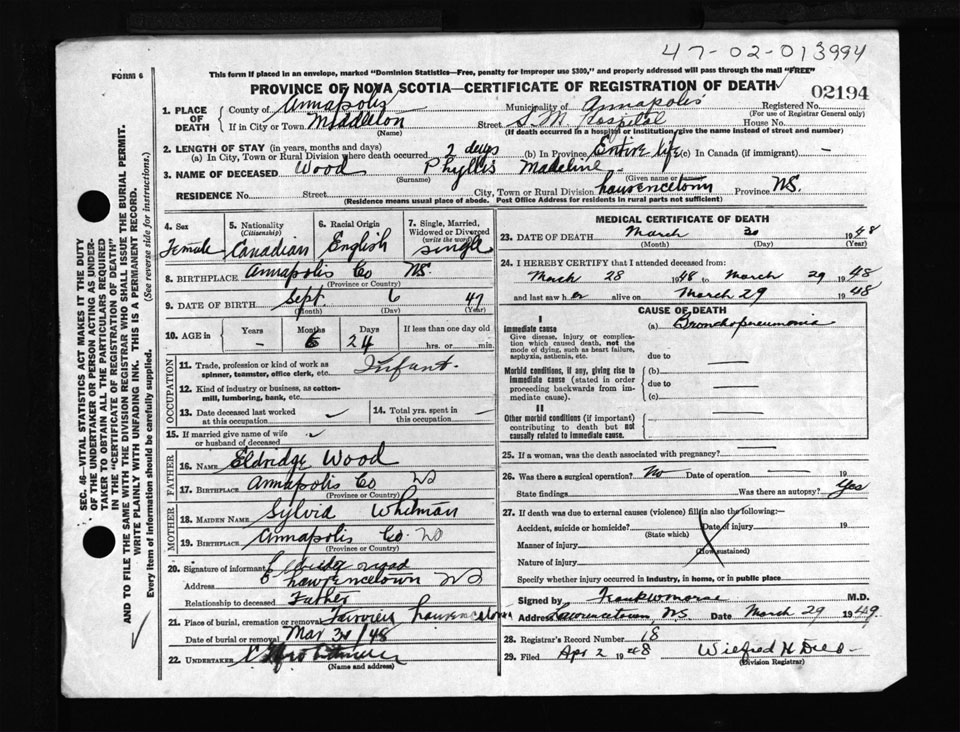 47-02-013994
FORM 6
This form if placed in an envelope, marked "Dominion Statistics—Free, penalty for improper use $300," and properly addressed will pass through the mail "FREE"
PROVINCE OF NOVA SCOTIA—CERTIFICATE OF REGISTRATION OF DEATH
02194
1. PLACE OF DEATH
County of Annapolis Municipality of Annapolis Registered No.
(For use of Registrar General only)
If in City or Town Middleton Street S. M. Hospital House No.
(Name) (If death occurred in a hospital or institution, give the name instead of street and number)
2. LENGTH OF STAY (in years, months and days)
(a) In City, Town or Rural Division where death occurred 2 days (b) In Province Entire life (c) In Canada (if immigrant) —
3. NAME OF DECEASED Wood Phyllis Madeline
(Surname) (Given name or names)
RESIDENCE No. Street City, Town or Rural Division Lawrencetown Province NS.
(Residence means usual place of abode. Post Office Address for residents in rural parts not sufficient)
4. Sex Female
5. Nationality (Citizenship) Canadian
6. Racial Origin English
7. Single, Married, Widowed or Divorced (write the word) Single
8. BIRTHPLACE Annapolis Co NS.
(Province or Country)
9. DATE OF BIRTH Sept 6 47
(Month) (Day) (Year)
10. AGE in Years Months Days If less than one day old
— 6 24 hrs. or min.
OCCUPATION
11. Trade, profession or kind of work as spinner, teamster, office clerk, etc. Infant.
12. Kind of industry or business, as cotton-mill, lumbering, bank, etc.
13. Date deceased last worked at this occupation
14. Total yrs. spent in this occupation
15. If married give name of wife or husband of deceased
FATHER
16. NAME Eldridge Wood
17. BIRTHPLACE Annapolis Co NS
(Province or Country)
MOTHER
18. MAIDEN NAME Sylvia Whitman
19. BIRTHPLACE Annapolis Co. NS
(Province or Country)
20. Signature of informant Elbridge Wood
Address Lawrencetown NS
Relationship to deceased Father
21. Place of burial, cremation or removal Fairview Lawrencetown
Date of burial or removal Mar 31/48
22. UNDERTAKER
(Name and address)
MEDICAL CERTIFICATE OF DEATH
23. DATE OF DEATH March 30 1948
(Month) (Day) (Year)
24. I HEREBY CERTIFY that I attended deceased from:
March 28 1948 to March 29 1948
and last saw her alive on March 29 1948
CAUSE OF DEATH
I
Immediate cause
Give disease, injury or complication which caused death, not the mode of dying, such as heart failure, asphyxia, asthenia, etc.
(a) Bronchopneumonia
due to
Morbid conditions, if any, giving rise to immediate cause (stated in order proceeding backwards from immediate cause).
(b)
due to
(c)
II
Other morbid conditions (if important) contributing to death but not causally related to immediate cause.
25. If a woman, was the death associated with pregnancy?
26. Was there a surgical operation? No Date of operation 19
State findings Was there an autopsy? Yes
27. If death was due to external causes (violence) fill in also the following:
Accident, suicide or homicide? Date of injury 19
(State which)
Manner of injury
(How sustained)
Nature of injury
Specify whether injury occurred in industry, in home, or in public place
Signed by Frank W Morse M.D.
Address Lawrencetown, N.S. Date March 29 1949.
28. Registrar's Record Number 18
29. Filed Apr 2 1948 Wilfred H
(Division Registrar)
SEC. 46—VITAL STATISTICS ACT MAKES IT THE DUTY
OF THE UNDERTAKER OR PERSON ACTING AS UNDER-
TAKER TO OBTAIN ALL THE PARTICULARS REQUIRED
IN THE "CERTIFICATE OF REGISTRATION OF DEATH"
AND TO FILE THE SAME WITH THE DIVISION REGISTRAR WHO SHALL ISSUE THE BURIAL PERMIT.
WRITE PLAINLY WITH UNFADING INK. THIS IS A PERMANENT RECORD.
Every item of information should be carefully supplied. (See reverse side for instructions.)